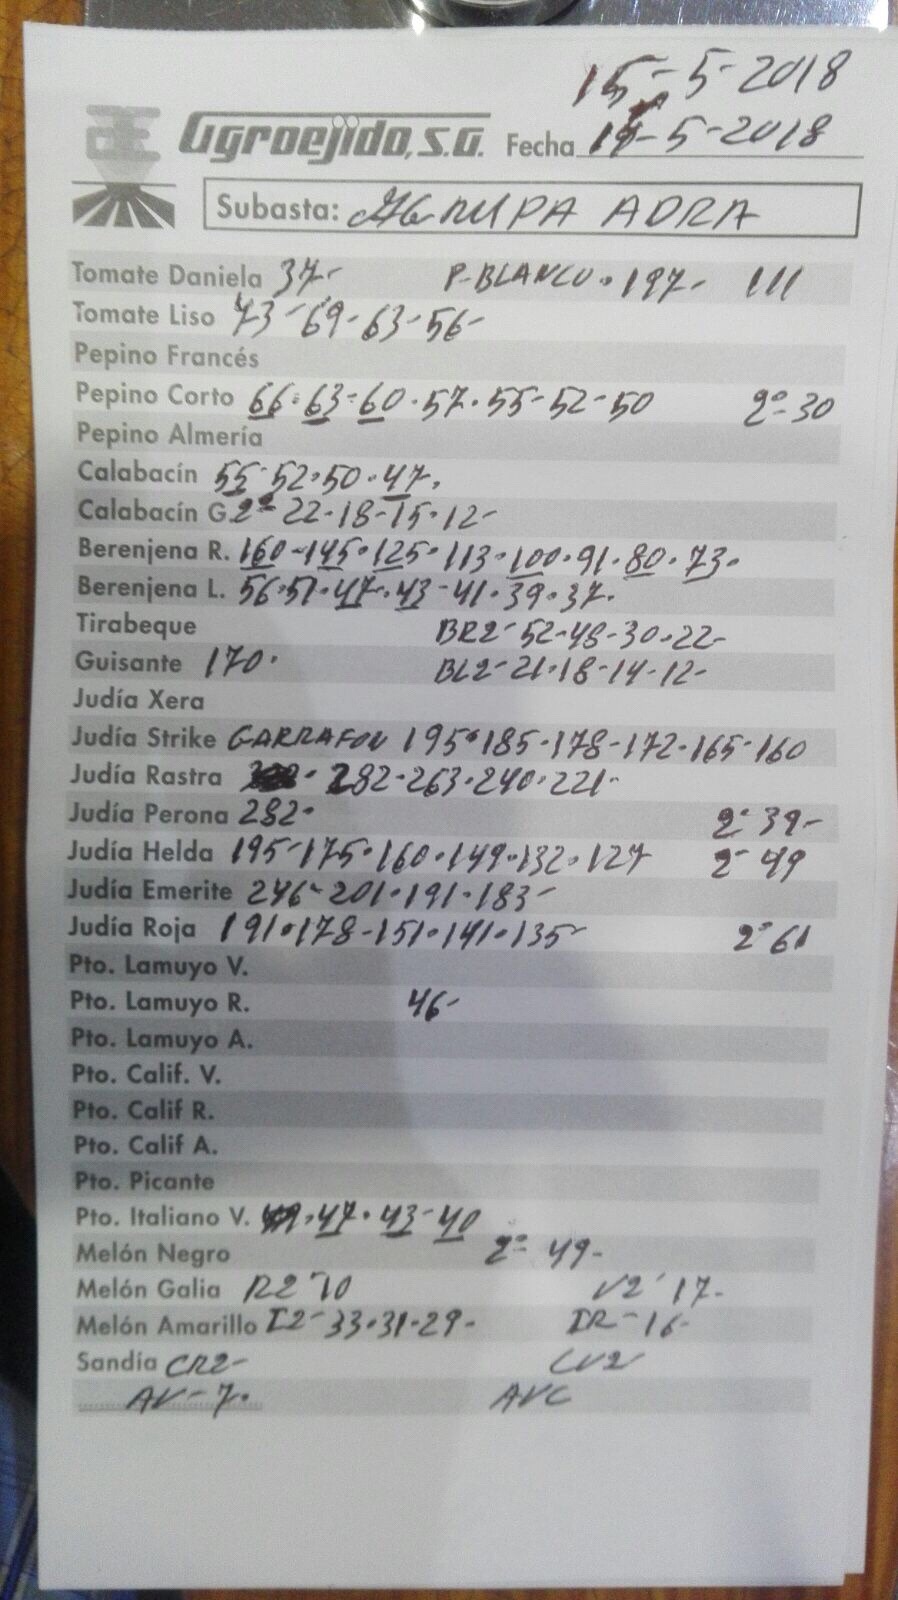 15-5-2018
Agroejido, S.A. Fecha 15-5-2018
Subasta: AGRUPA ADRA
Tomate Daniela 37- P-BLANCO·197- 111
Tomate Liso 73-69-63-56-
Pepino Francés
Pepino Corto 66·63-60·57·55-52-50 2ª-30
Pepino Almería
Calabacín 55-52·50·47·
Calabacín G 2ª 22-18-15·12-
Berenjena R. 160-145·125·113·100·91·80·73·
Berenjena L. 56·51·47·43-41·39·37·
Tirabeque BR2-52-48-30·22-
Guisante 170· BL2-21·18-14-12-
Judía Xera
Judía Strike GARRAFON 195·185·178-172·165·160
Judía Rastra 282·263·240·221-
Judía Perona 282· 2ª 39-
Judía Helda 195-175·160·149·132·127 2ª 49
Judía Emerite 246-201·191·183-
Judía Roja 191·178-151·141·135- 2ª 61
Pto. Lamuyo V.
Pto. Lamuyo R. 46-
Pto. Lamuyo A.
Pto. Calif. V.
Pto. Calif R.
Pto. Calif A.
Pto. Picante
Pto. Italiano V. 49·47·43-40
Melón Negro 2ª 49-
Melón Galia R2-10 V2-17-
Melón Amarillo I2-33·31·29- IR-16-
Sandía CR2- CV2
AV-7· AVC